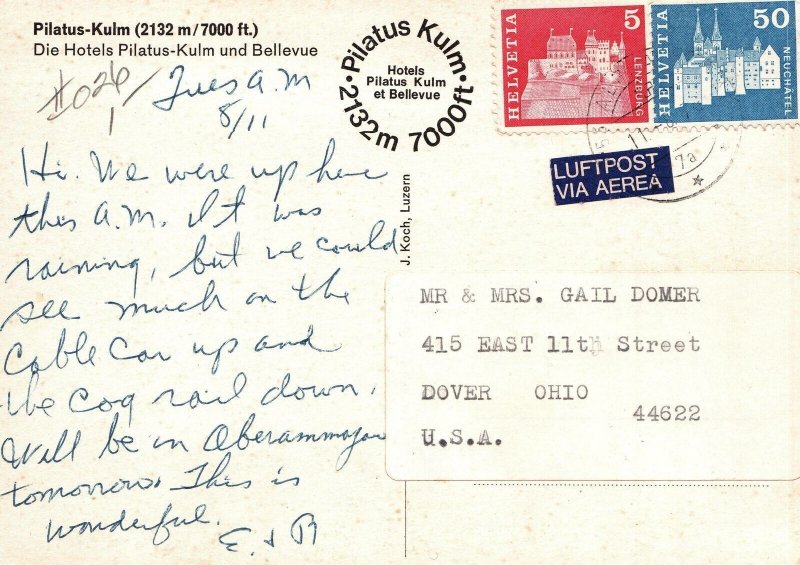 Pilatus-Kulm (2132 m/7000 ft.)
Die Hotels Pilatus-Kulm und Bellevue
#026/1
Tues A.M
8/11
Hi. We were up here
this A.M. It was
raining, but we could
see much on the
Cable Car up and
the Cog rail down.
Will be in Oberammagau
tomorrow. This is
wonderful.
E. & R
• Pilatus Kulm •
2132m 7000ft
Hotels
Pilatus Kulm
et Bellevue
J. Koch, Luzern
HELVETIA
5
LENZBURG
HELVETIA
50
NEUCHÂTEL
LUFTPOST
VIA AEREA
MR & MRS. GAIL DOMER
415 EAST 11th Street
DOVER OHIO
44622
U.S.A.